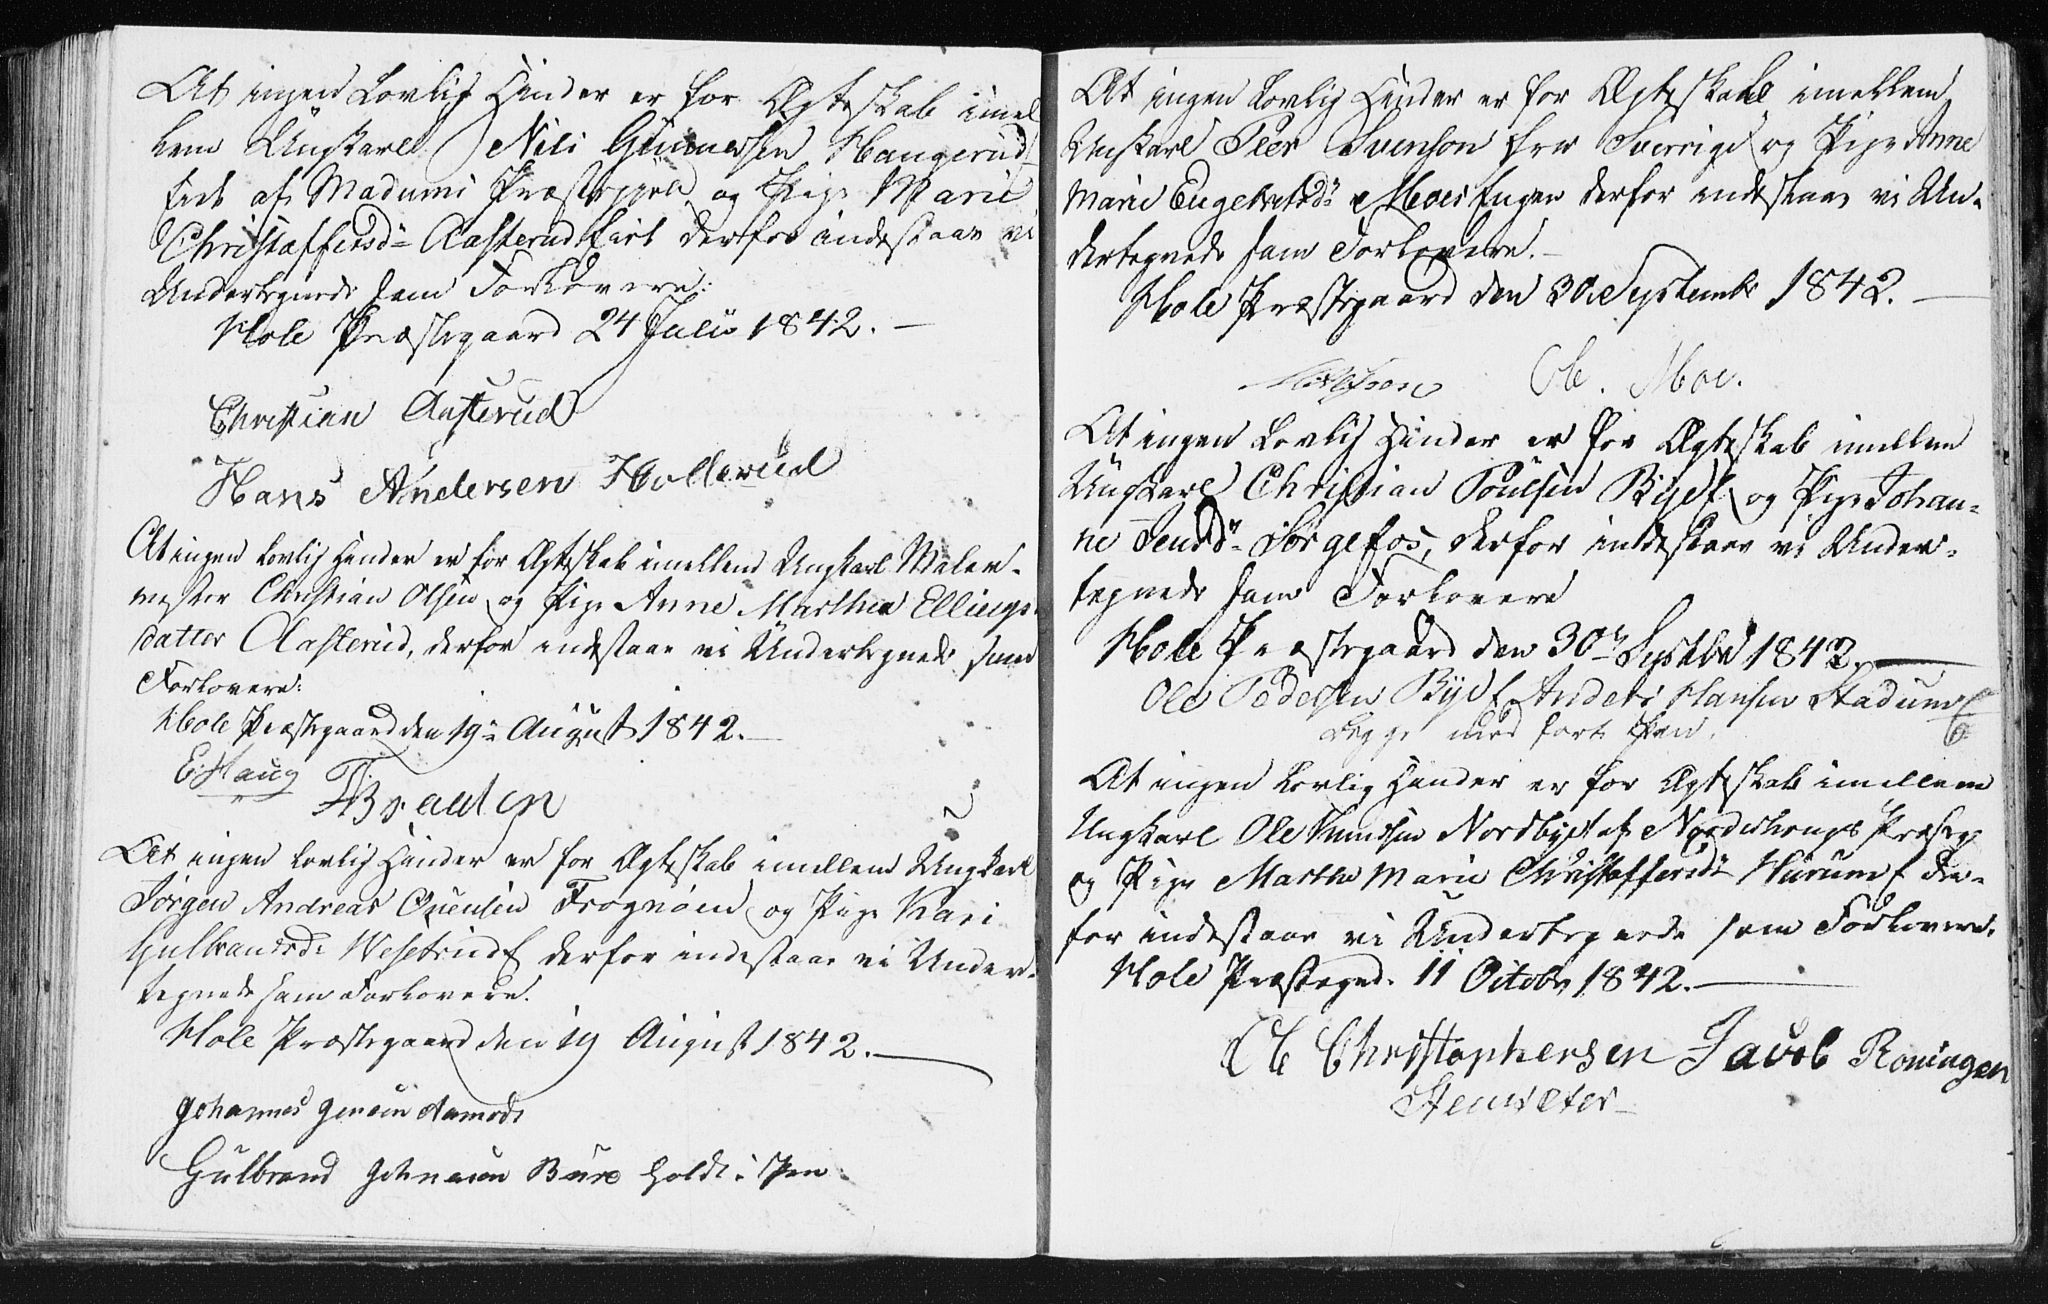 At ingen Lovlig Hinder er for Ægteskab imel
lem Ungkarl Nils Gunnersen Haugerud
Eie af Modums Præstegjeld og Pige Marie
Christoffersd: Aasterud Eie derfor indestaar vi
Undertegnede som Forlovere:
Hole Præstegaard 24 Juli 1842. —
Christian Aasterud
Hans Andersen Hollerud
At ingen Lovlig Hinder er for Ægteskab imellem Ungkarl Maler-
mester Christian Olsen og Pige Anne Marthea Ellings-
datter Aasterud, derfor indestaar vi Undertegnede som
Forlovere:
Hole Præstegaard den 19: August 1842. —
E. Haug
Braaten
At ingen lovlig Hinder er for Ægteskab imellem Ungkarl
Jørgen Andreas Evensen Frognøen og Pige Kari
Gulbrandsd: Wesetrud E derfor indestaar vi Under-
tegnede som Forlovere.
Hole Præstegaard den 19 August 1842. —
Johannes Jensen Aamodt
Gulbrand Johnsen Bure holdt i Pen
At ingen Lovlig Hinder er for Ægteskabe imellem
Ungkarl Peer Svenson fra Sverrige og Pige Anne
Marie Engebretsd: Moes Engen derfor indestaar vi Un-
dertegnede som Forlovere. —
Hole Præstegaard den 30. Septembr 1842. —
Ole. Moe.
At ingen Lovlig Hinder er for Ægteskab imellem
Ungkarl Christian Poulsen Bye E. og Pige Johan-
ne Jensd: Sørgefos, derfor indestaar vi Under-
tegnede som Forlovere
Hole Præstegaard den 30te Septbr 1842. —
Ole Pedersen Bye E. Anders Hansen Stadum E
begge med ført Pen.
At ingen Lovlig Hinder er for Ægteskab imellem
Ungkarl Ole Knudsen Nordbye E af Norderhougs Præstg
og Pige Marthe Marie Christoffersd: Hurum E der-
for indestaar vi Undertegnede som Forlovere.
Hole Præstegrd. 11 Octobr 1842. —
Ole Christophersen Jacob Roningen